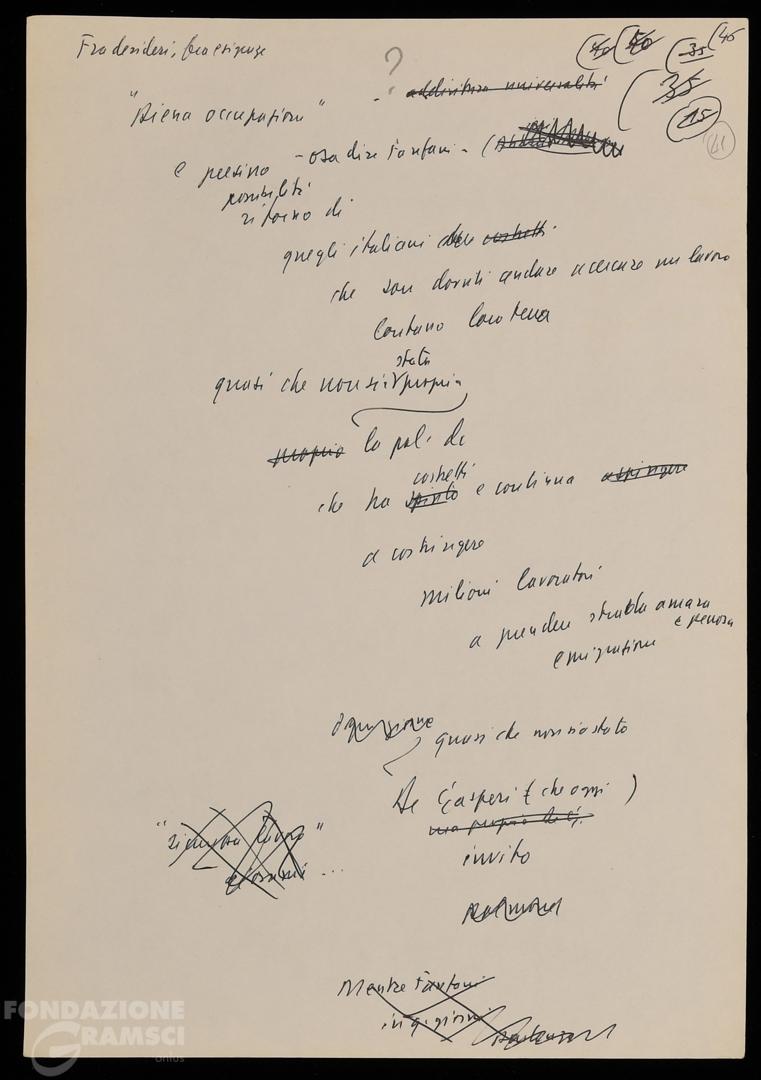 Fra desideri, fra esigenze
(40 (50 (35 (45
(35
?
15
41
"Piena occupazione" - addirittura universalità
e persino - osa dire Fanfani - (
possibilità
ritorno di
quegli italiani che costretti
che son dovuti andare a cercare un lavoro
lontano loro terra
stata
quasi che non sia propria
propria la pol. di
costretti
che ha spinto e continua a spingere
a costringere
milioni lavoratori
a prendere strada amara
e penosa
emigrazione
quasi che non sia stato
De Gasperi (che oggi)
ma proprio de G.
invito
" "
...
Mentre Fanfani
in q. giorni
FONDAZIONE
GRAMSCI
onlus